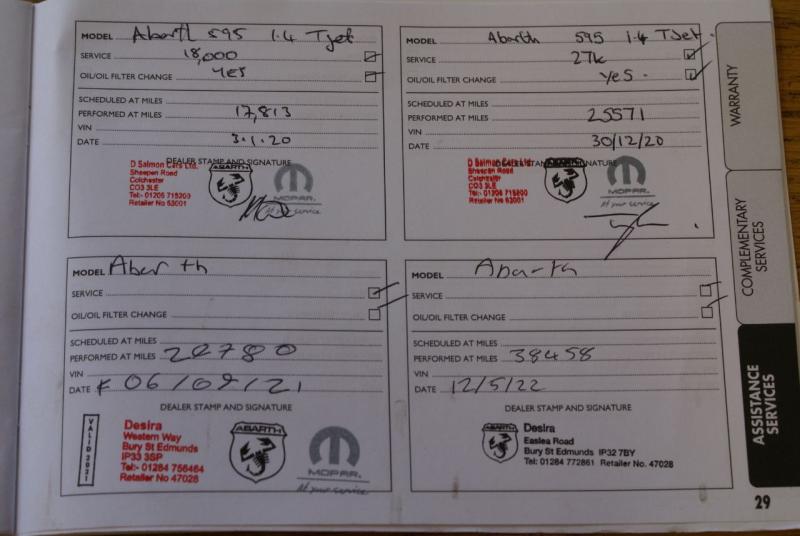 MODEL Abarth 595 1.4 Tjet
SERVICE 18,000
OIL/OIL FILTER CHANGE YES
SCHEDULED AT MILES
PERFORMED AT MILES 17,813
VIN
DATE 3.1.20
DEALER STAMP AND SIGNATURE
D Salmon Cars Ltd.
Sheepen Road
Colchester
CO3 3LE
Tel:- 01206 715200
Retailer No 53001
ABARTH
MOPAR.
At your service
MODEL Abarth 595 1.4 TJet
SERVICE 27k
OIL/OIL FILTER CHANGE Yes.
SCHEDULED AT MILES
PERFORMED AT MILES 25571
VIN
DATE 30/12/20
DEALER STAMP AND SIGNATURE
D Salmon Cars Ltd.
Sheepen Road
Colchester
CO3 3LE
Tel:- 01206 715200
Retailer No 53001
ABARTH
MOPAR.
At your service
MODEL Abarth
SERVICE
OIL/OIL FILTER CHANGE
SCHEDULED AT MILES
PERFORMED AT MILES
VIN
DATE 06/09/21
DEALER STAMP AND SIGNATURE
VALID 2021
Desira
Western Way
Bury St Edmunds
IP33 3SP
Tel:- 01284 756464
Retailer No 47028
ABARTH
MOPAR.
At your service
MODEL Abarth
SERVICE
OIL/OIL FILTER CHANGE
SCHEDULED AT MILES
PERFORMED AT MILES 38458
VIN
DATE 12/5/22
DEALER STAMP AND SIGNATURE
ABARTH
Desira
Easlea Road
Bury St Edmunds IP32 7BY
Tel: 01284 772861 Retailer No. 47028
WARRANTY
COMPLEMENTARY
SERVICES
ASSISTANCE
SERVICES
29